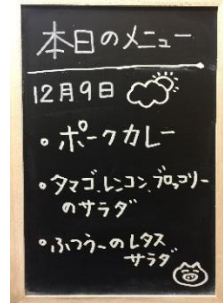 本日のメニュー
12月9日
・ポークカレー
・タマゴ、レンコン、ブロッコリー
のサラダ
・ふつぅーのレタス
サラダ